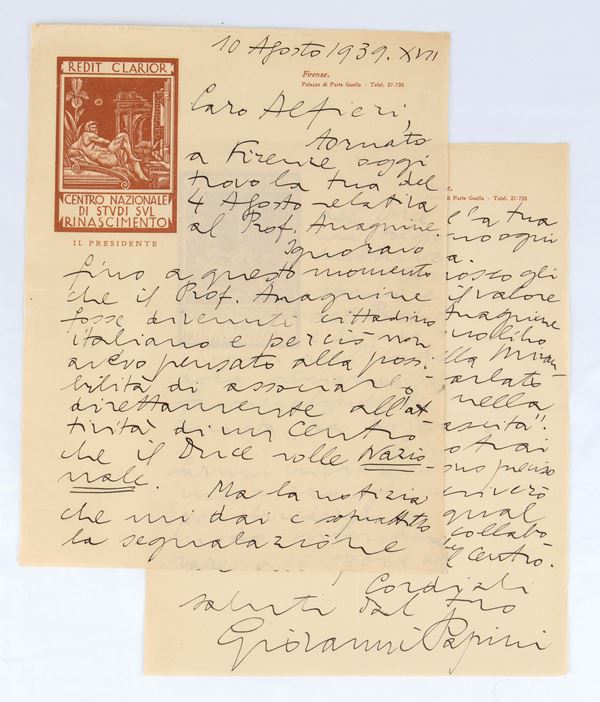 10 Agosto 1939. XVII
REDIT CLARIOR
CENTRO NAZIONALE
DI STVDI SVL
RINASCIMENTO
IL PRESIDENTE
Firenze,
Palazzo di Parte Guelfa - Telef. 27-728
Caro Alfieri,
tornato
a Firenze oggi
trovo la tua del
4 Agosto relativa
al Prof. Anagnine.
Ignoravo
fino a questo momento
che il Prof. Anagnine
fosse divenuto cittadino
italiano e perciò non
avevo pensato alla possi
bilità di associarlo
direttamente all'at
tività di un Centro
che il Duce volle Nazio-
nale. Ma la notizia
che mi dai e soprattutto
la segnalazione
di Parte Guelfa - Telef. 27-728
la tua
ogni
gli
il valore
Anagnine
libro
Miran
parlato
nella
ascita".
penso
scriverò
qual
collabo
Centro.
Cordiali
saluti dal tuo
Giovanni Papini